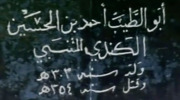 أبو الطيب أحمد بن الحسين
الكندي المتنبي
ولد سنة ٣٠٣ هـ
وقتل سنة ٣٥٤ هـ